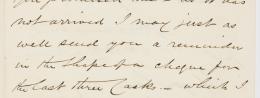 not arrived I may just as
well send you a reminder
in the shape of a cheque for
the last three Casks – which I